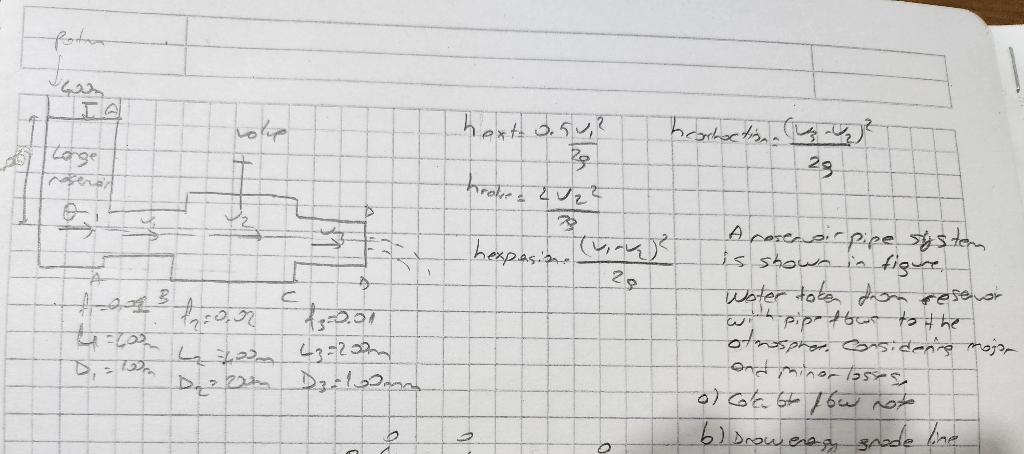 400m
I
Large
reservoir
Q
V1
V2
V3
A
B
C
D
D
f1=0.01
L1=400m
f2=0.02
L2=400m
f3=0.01
L3=200m
D3=100mm
h ext= 0.5 V1²
2g
h valve= 2 V2²
2g
h expasion= (V1-V2)²
2g
h contraction= (V3-V2)²
2g
A reservoir pipe system
is shown in figure.
Water taken from reservoir
with pipe flows to the
atmosphere. Considering major
and minor losses,
a) flow rate
b) Draw energy grade line